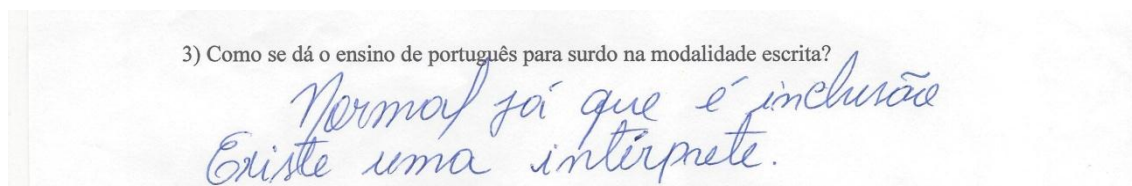 3) Como se dá o ensino de português para surdo na modalidade escrita?
Normal já que é inclusão
Existe uma intérprete.